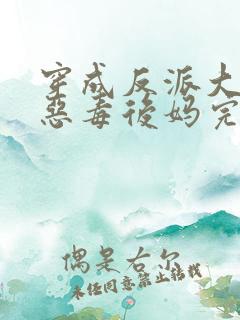 穿成反派大
惡毒後媽完
偶是右尔
未经同意禁止转载